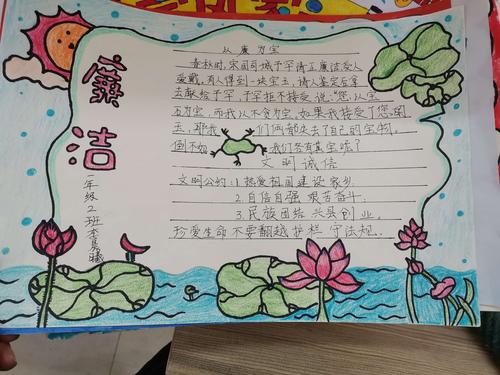 廉洁
一年级2班李
从廉为宝
春秋时,宋国司城子罕清正廉洁,受人
爱戴,有人得到一块宝玉,请人鉴定后拿
去献给子罕,子罕拒不接受,说:"您以宝
石为宝,而我从不贪为宝,如果我接受了您
玉,那我们俩都失去了自己的宝物,
倒不如我们各有其宝呢?
文明诚信
文明公约:1.热爱祖国 建设家乡
2.自信自强 艰苦奋斗
3.民族团结 兴县创业。
珍爱生命 不要翻越护栏 守法规.